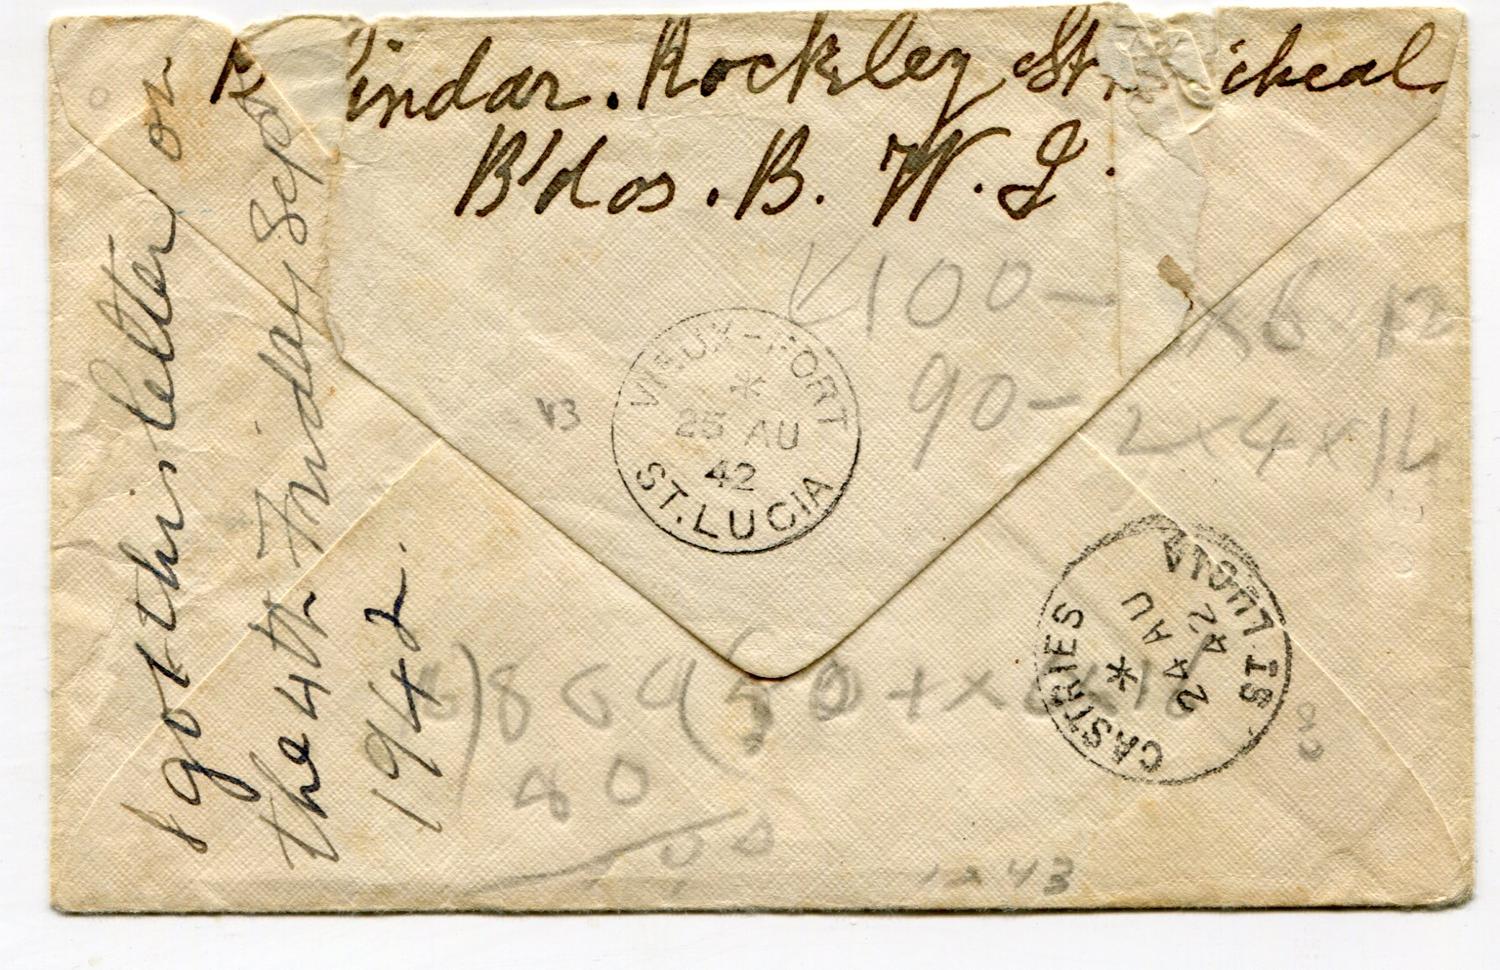 Pindar. Rockley St. Micheal
B'dos. B. W. I.
I got this letter on
the 4th Friday Sept
1942.
VIEUX-FORT
*
25 AU
42
ST. LUCIA
CASTRIES
*
24 AU
42
ST. LUCIA
100 -
90 - 2 x 4 x
80
43